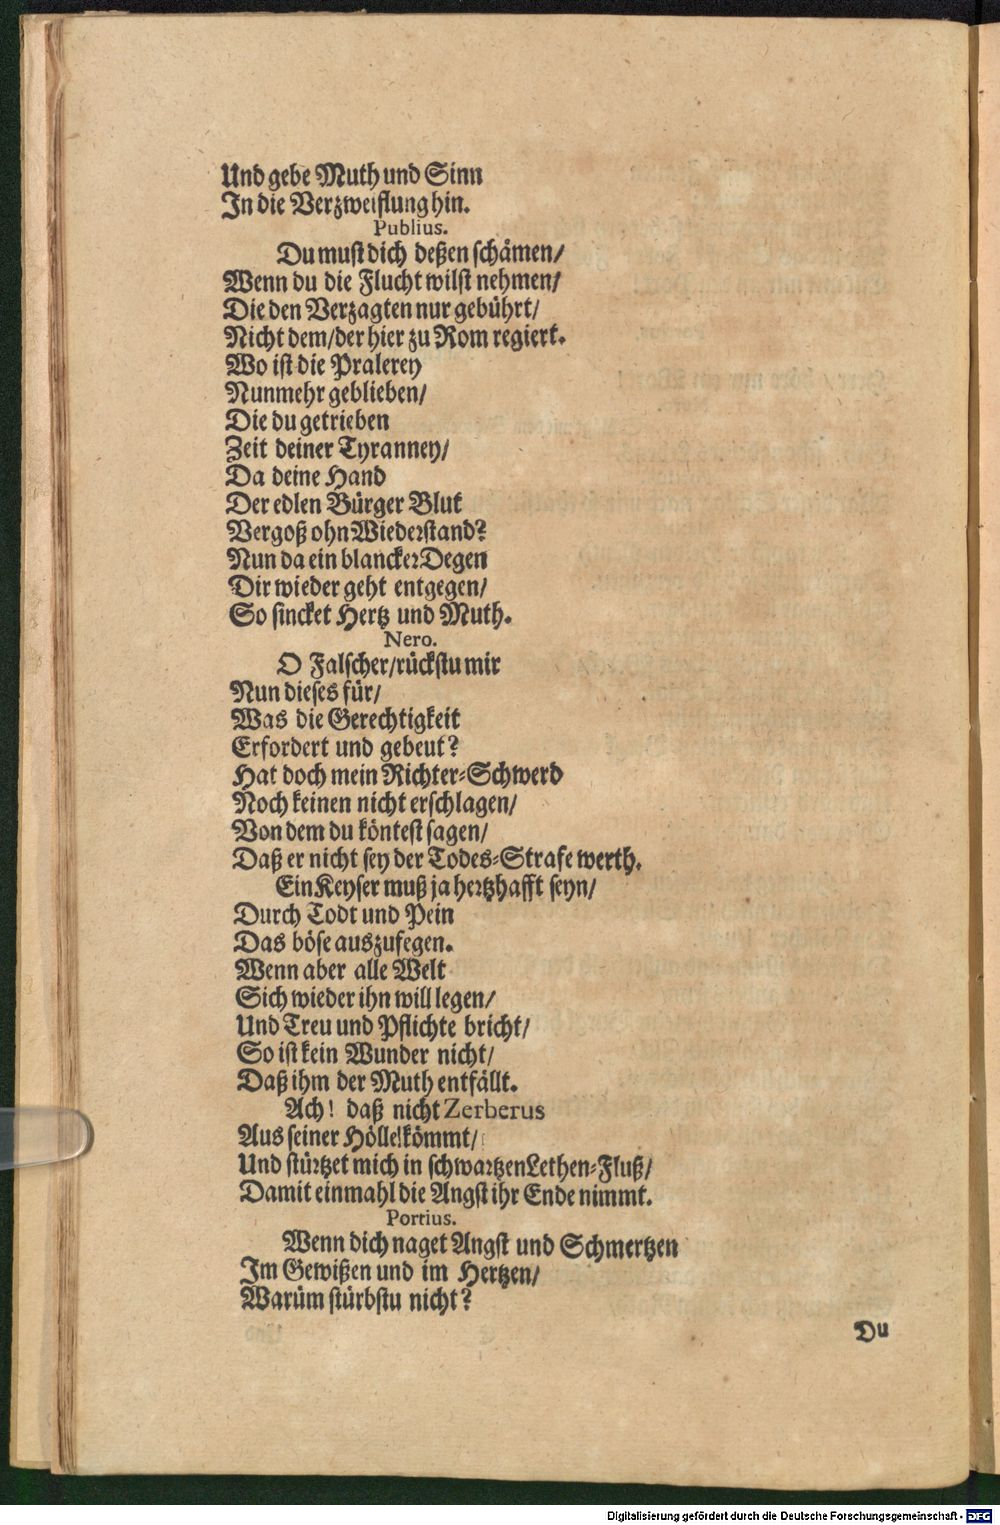 Und gebe Muth und Sinn
In die Verzweiflung hin.
Publius.
Du must dich deßen schämen/
Wenn du die Flucht wilst nehmen/
Die den Verzagten nur gebührt/
Nicht dem/der hier zu Rom regiert.
Wo ist die Pralerey
Nunmehr geblieben/
Die du getrieben
Zeit deiner Tyranney/
Da deine Hand
Der edlen Bürger Blut
Vergoß ohn Wiederstand?
Nun da ein blancker Degen
Dir wieder geht entgegen/
So sincket Hertz und Muth.
Nero.
O Falscher/rückstu mir
Nun dieses für/
Was die Gerechtigkeit
Erfordert und gebeut?
Hat doch mein Richter-Schwerd
Noch keinen nicht erschlagen/
Von dem du köntest sagen/
Daß er nicht sey der Todes-Strafe werth.
Ein Keyser muß ja hertzhafft seyn/
Durch Todt und Pein
Das böse auszufegen.
Wenn aber alle Welt
Sich wieder ihn will legen/
Und Treu und Pflichte bricht/
So ist kein Wunder nicht/
Daß ihm der Muth entfällt.
Ach! daß nicht Zerberus
Aus seiner Hölle kömmt/
Und stürtzet mich in schwartzen Lethen-Fluß/
Damit einmahl die Angst ihr Ende nimmt.
Portius.
Wenn dich naget Angst und Schmertzen
Im Gewißen und im Hertzen/
Warüm stürbstu nicht?
Du
Digitalisierung gefördert durch die Deutsche Forschungsgemeinschaft - DFG